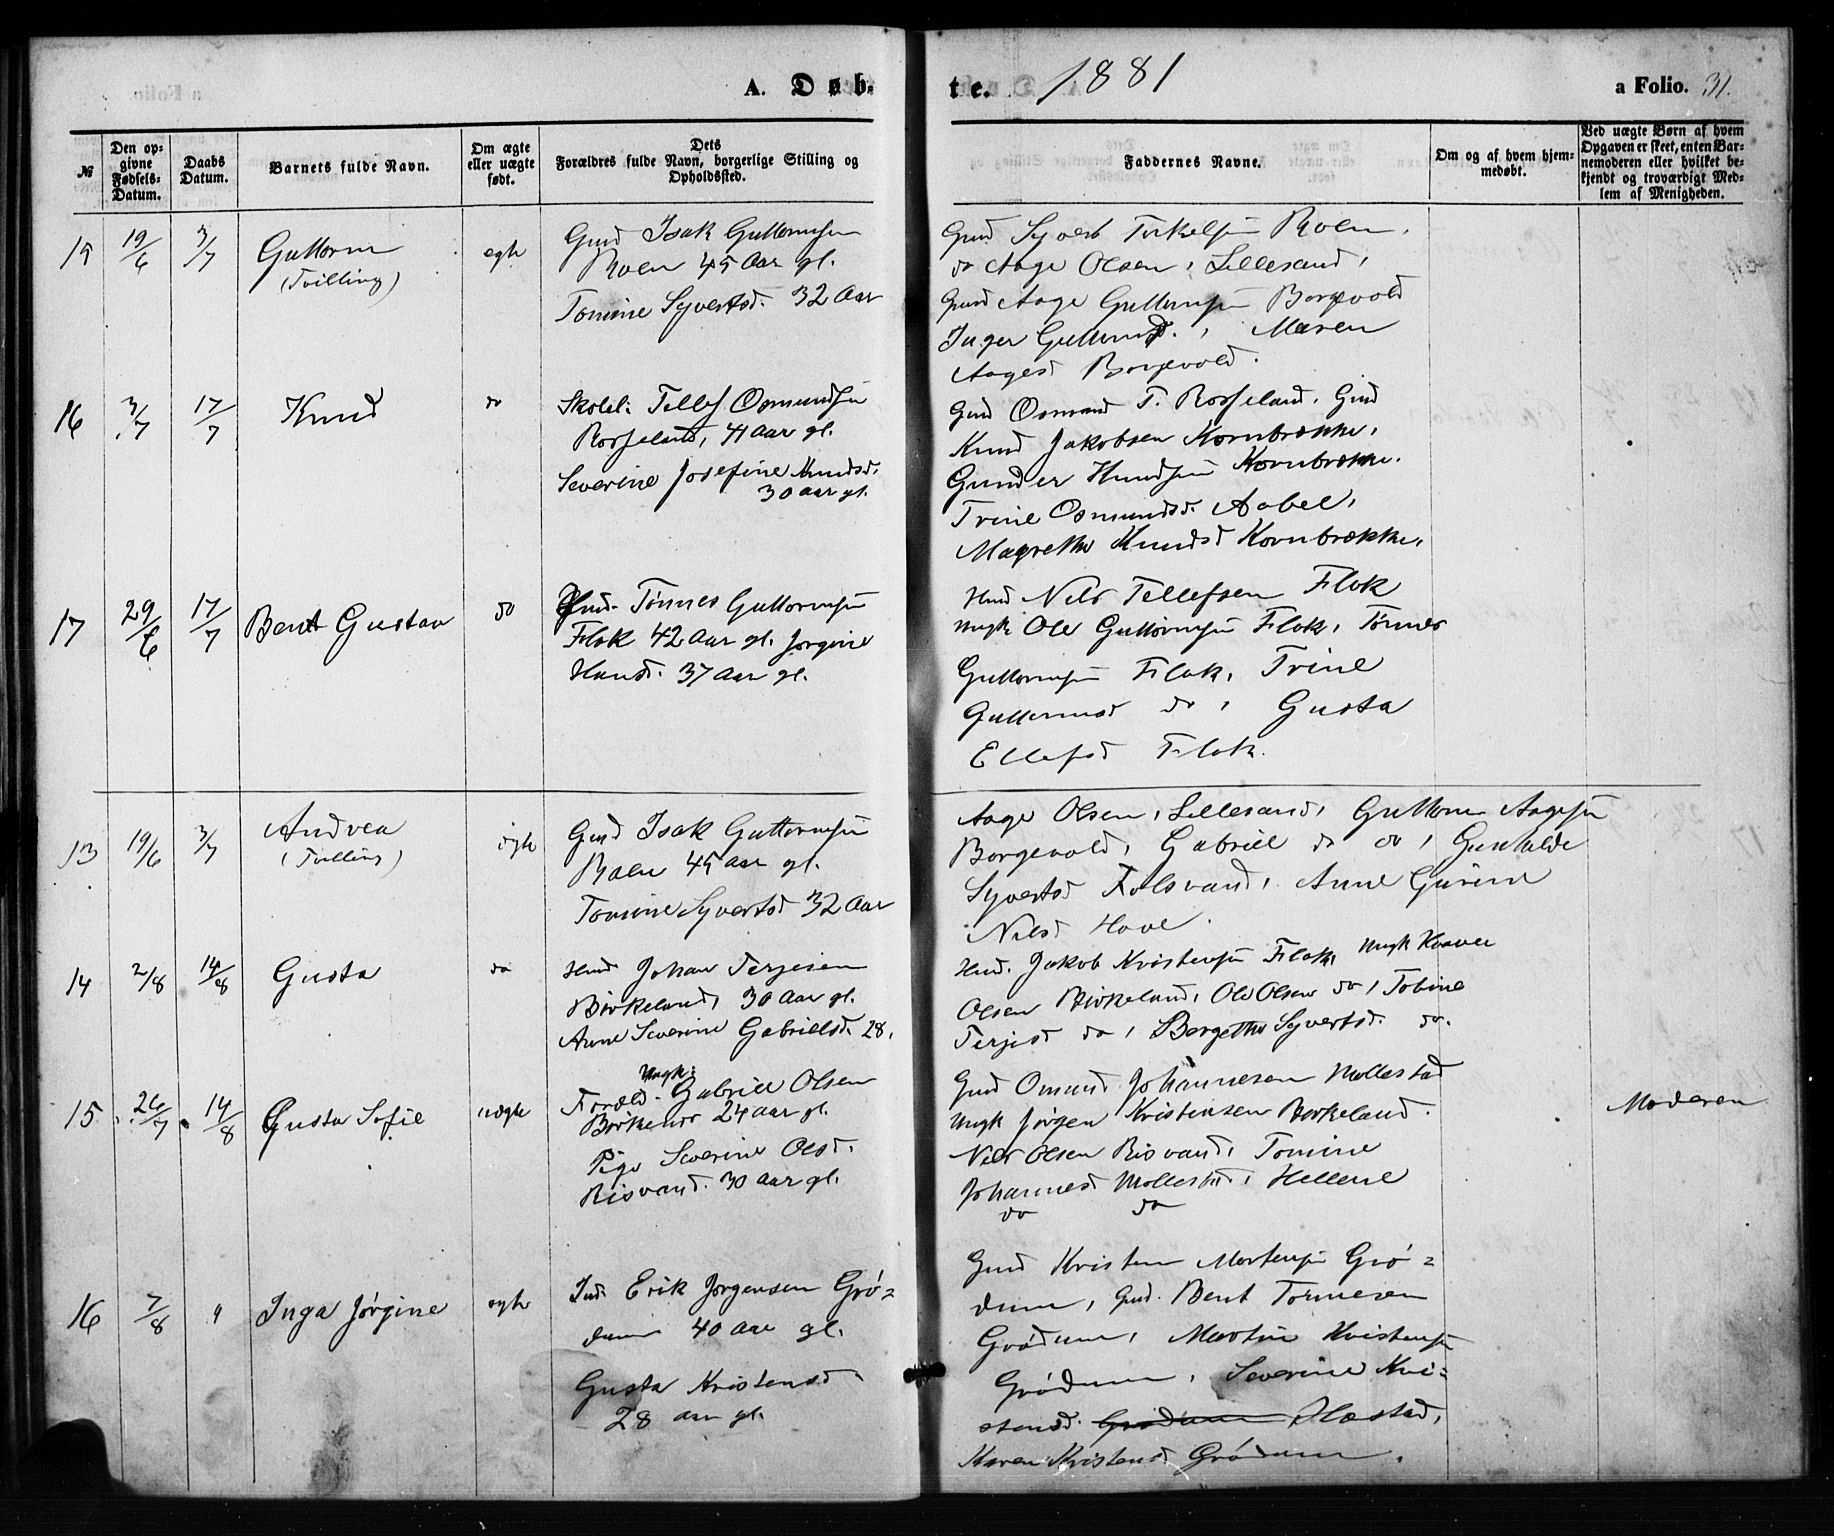 A. Døb-
te. 1881
a Folio. 31.
№
Den op-
givne
Fødsels-
Datum.
Daabs
Datum.
Barnets fulde Navn.
Om ægte
eller uægte
født.
Dets
Forældres fulde Navn, borgerlige Stilling og
Opholdssted.
Faddernes Navne.
Om og af hvem hjem-
medøbt.
Ved uægte Børn af hvem
Opgaven er skeet, enten Bar-
nemoderen eller hvilket be-
kjendt og troværdigt Med-
lem af Menigheden.
15 19/6 3/7 Guttorm
(Tvilling)
egte
Grd Isak Guttormsen
Roen 45 Aar gl.
Tomine Syvertsd. 32 Aar
Grd Syvert Terkelsen Roen.
do Aage Olsen, Lillesand,
Grd Aage Guttormsen Borgevold
Inger Guttormsd., Maren
Aagesd Borgevold.
16 3/7 17/7 Knud
do
Skolel. Tellef Osmundsen
Rosseland, 41 Aar gl.
Severine Josefine Knudsd.
30 aar gl.
Grd Osmund T. Rosseland. Grd
Knud Jakobsen Kornbrække,
Gunder Knudsen Kornbrække.
Trine Osmundsd. Aabel,
Magrethe Knudsd Kornbrække,
17 29/6 17/7 Bent Gustav
do
Grd. Tønnes Guttormsen
Flak 42 Aar gl. Jorgine
Hansd. 37 Aar gl.
Hmd Nils Tellefsen Flak
Ungk Ole Guttormsen Flak, Tønnes
Guttormsen Flak, Trine
Guttormsd do, Gusta
Ellefsd Flak.
13 19/6 3/7 Andrea
(Tvilling)
ægte
Grd Isak Guttormsen
Roen 45 Aar gl.
Tomine Syvertsd 32 Aar
Aage Olsen, Lillesand, Guttorm Aagesen
Borgevold, Gabriel do do, Gunhilde
Syvertsd Folsvand, Anne Gurine
Nilsd Hove.
14 2/8 14/8 Gusta
do
Hmd Johan Terjesen
Birkeland, 30 Aar gl.
Anne Severine Gabrielsd. 28.
Hmd. Jakob Kristensen Flak, Ungk Haaver
Olsen Birkeland, Ole Olsen do, Tobine
Terjesd do, Bergethe Syvertsd. do.
15 26/7 14/8 Gusta Sofie
uægte
Ungk:
Foræld. Gabriel Olsen
Birkenes 24 aar gl.
Pige Severine Olsd.
Risvand. 30 aar gl.
Grd Omund Johannesen Mollestad
Ungk Jørgen Kristensen Birkeland.
Nils Olsen Risvand, Tomine
Johannesd Mollestad, Hellene
do do
Moderen
16 7/8 " Inga Jørgine
egte
Ind. Erik Jørgensen Grø-
dum 40 Aar gl.
Gusta Kristensd
28 aar gl.
Grd Kristen Mortensen Grø-
dum, Grd. Bent Tormesen
Grødum, Martin Kristensen
Grødum, Severine Kri-
stensd. Grødum Ilestad,
Karen Kristensd Grødum.